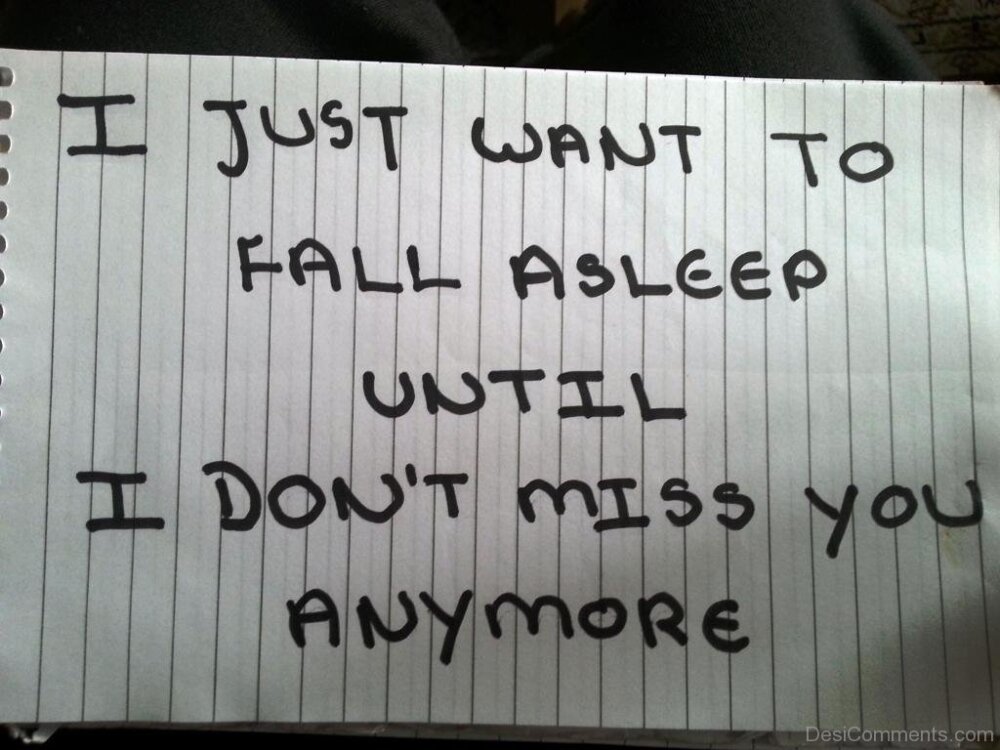 I JUST WANT TO
FALL ASLEEP
UNTIL
I DON'T MISS YOU
ANYMORE
DesiComments.com